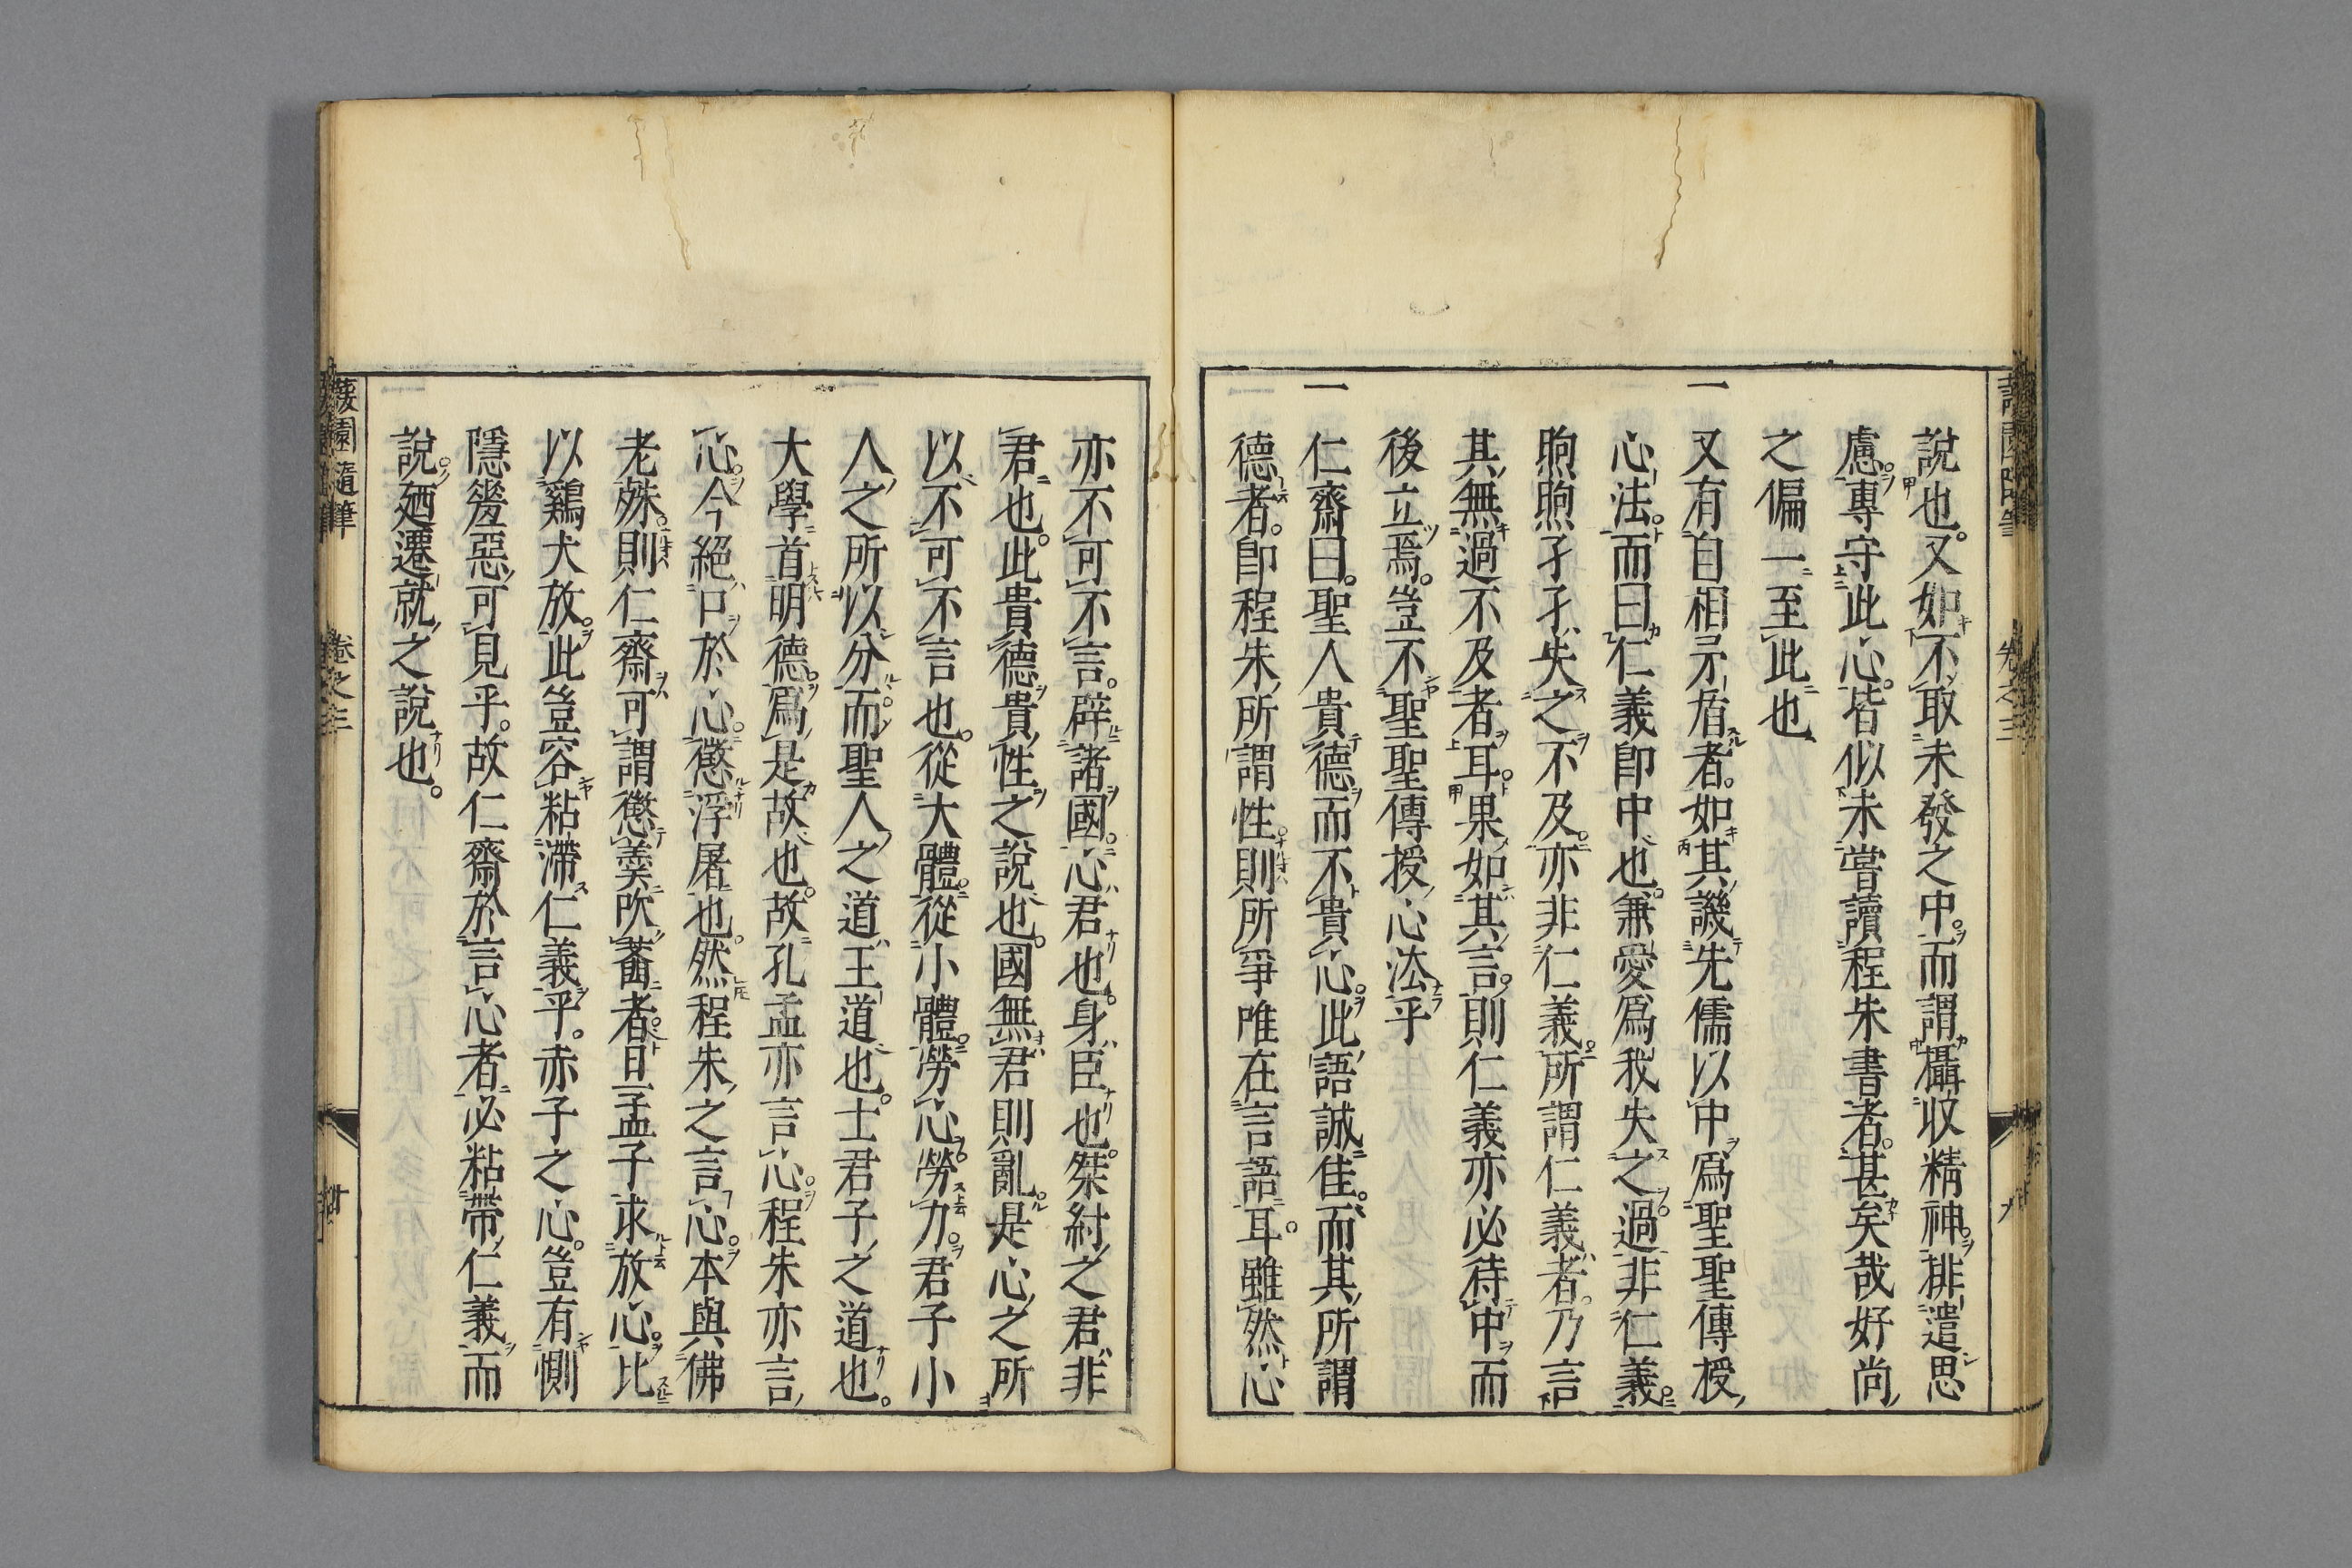 說也。又如不取未發之中。而謂攝收精神。排遣思
慮。專守此心。皆似未嘗讀程朱書者。甚矣哉好尚
之偏一至此也
一又有自相矛盾者。如其譏先儒以中爲聖聖傳授
心法。而曰仁義卽中也。兼愛爲我失之過非仁義。
煦煦孑孑失之不及。亦非仁義。所謂仁義者。乃言
其無過不及者耳。果如其言。則仁義亦必待中而
後立焉。豈不聖聖傳授心法乎
一仁齋曰。聖人貴德而不貴心。此語誠佳。而其所謂
德者。卽程朱所謂性。則所爭唯在言語耳。雖然心
亦不可不言。辟諸國。心君也。身臣也。桀紂之君非
君也。此貴德貴性之說也。國無君則亂。是心之所
以不可不言也。從大體從小體。勞心勞力。君子小
人之所以分。而聖人之道王道也。士君子之道也。
大學首明德爲是故也。故孔孟亦言心。程朱亦言
心。今絕口於心。懲浮屠也。然程朱之言心。本與佛
老殊。則仁齋可謂懲羹吹虀者。曰孟子求放心。比
以鷄犬放。此豈容粘滯仁義乎。赤子之心。豈有惻
隱發惡可見乎。故仁齋於言心者必粘帶仁義而
說。廼遷就之說也。
蘐園隨筆
卷之三